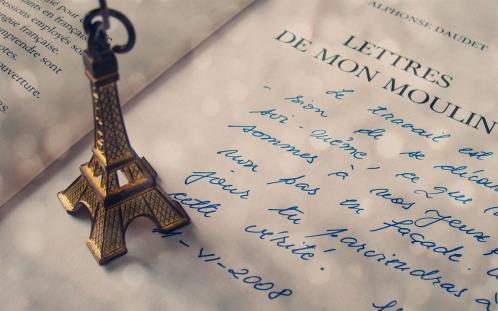 pressions employés son
ngue française.
mprendre sont
otes.
ouverture.
ALPHONSE DAUDET
LETTRES
DE MON MOULIN
- Le travail est
sion de se décou
soi-même, ce que
sommes à nos yeux
non pas en façade.
jour tu parviendras à
cette vérité.
11-VI-2008